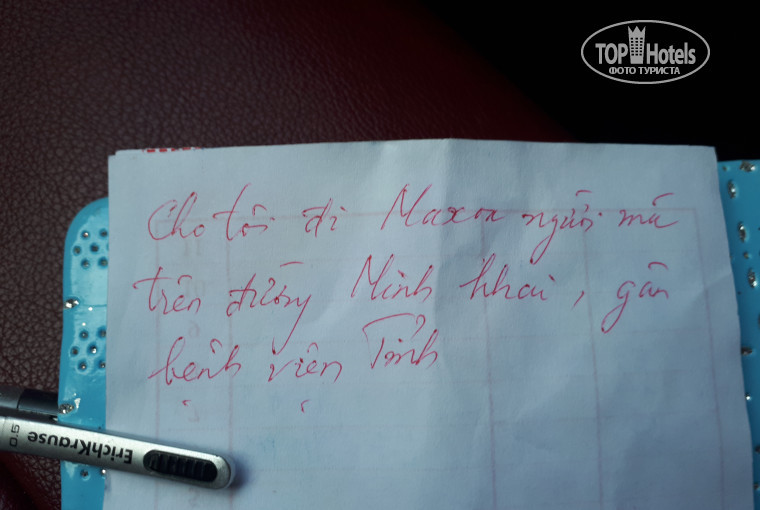 TOP Hotels
ФОТО ТУРИСТА
Cho tôi đi Maxoa người mù
trên đường Minh Khai, gần
bệnh viện Tỉnh
ErichKrause